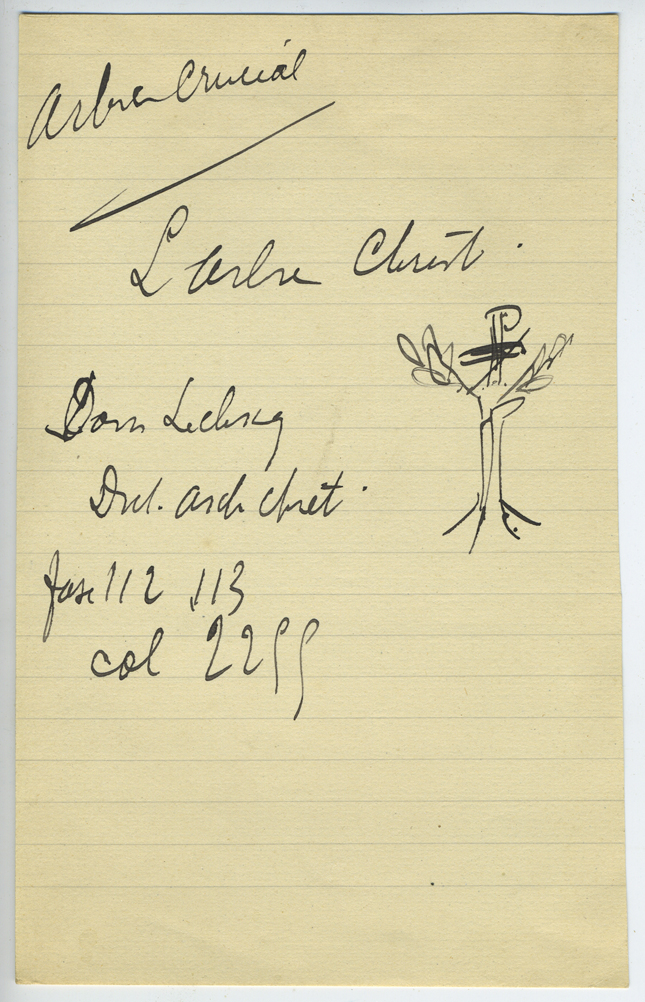 Arbre Crucial
L'arbre Christ.
Dom Leclercq
Dict. arch chrét.
fasc 112 113
col 2299